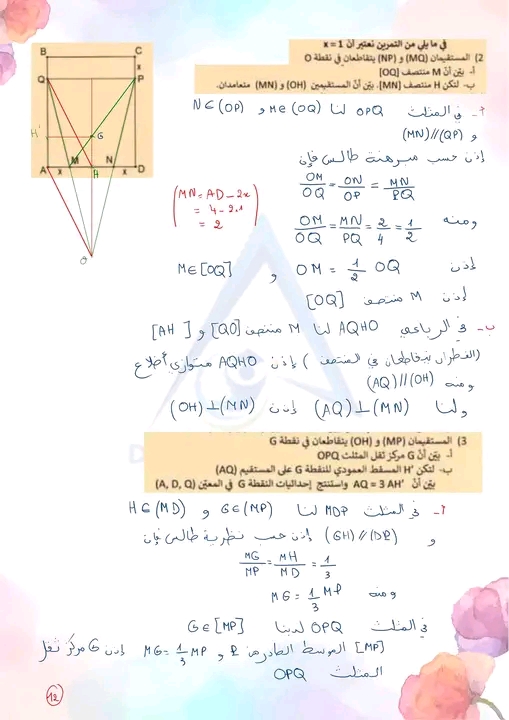 في ما يلي من التمرين نعتبر أنّ x = 1
2) المستقيمان (MQ) و (NP) يتقاطعان في نقطة O
أ- بيّن أنّ M منتصف [OQ]
ب- لتكن H منتصف [MN]. بيّن أنّ المستقيمين (OH) و (MN) متعامدان.
B C
x
Q P
H' G
A x M H N x D
O
أ- في المثلث OPQ لنا M∈(OQ) و N∈(OP)
و (MN)//(QP)
إذن حسب مبرهنة طالس فإن
OM/OQ = ON/OP = MN/PQ
(MN = AD - 2x
= 4 - 2.1
= 2)
ومنه OM/OQ = MN/PQ = 2/4 = 1/2
إذن OM = 1/2 OQ و M∈[OQ]
إذن M منتصف [OQ]
ب- في الرباعي AQHO لنا M منتصف [QO] و [AH]
(القطران يتقاطعان في المنتصف) إذن AQHO متوازي أضلاع
ومنه (AQ)//(OH)
ولنا (AQ)⊥(MN) إذن (OH)⊥(MN)
3) المستقيمان (MP) و (OH) يتقاطعان في نقطة G
أ- بيّن أنّ G مركز ثقل المثلث OPQ
ب- لتكن H' المسقط العمودي للنقطة G على المستقيم (AQ)
بيّن أنّ AQ = 3 AH' واستنتج إحداثيات النقطة G في المعيّن (A, D, Q)
أ- في المثلث MDP لنا G∈(MP) و H∈(MD)
و (GH)//(DP) إذن حسب نظرية طالس فإن
MG/MP = MH/MD = 1/3
ومنه MG = 1/3 MP
في المثلث OPQ لدينا G∈[MP]
[MP] الموسط الصادر من P و MG = 1/3 MP إذن G مركز ثقل
المثلث OPQ
12